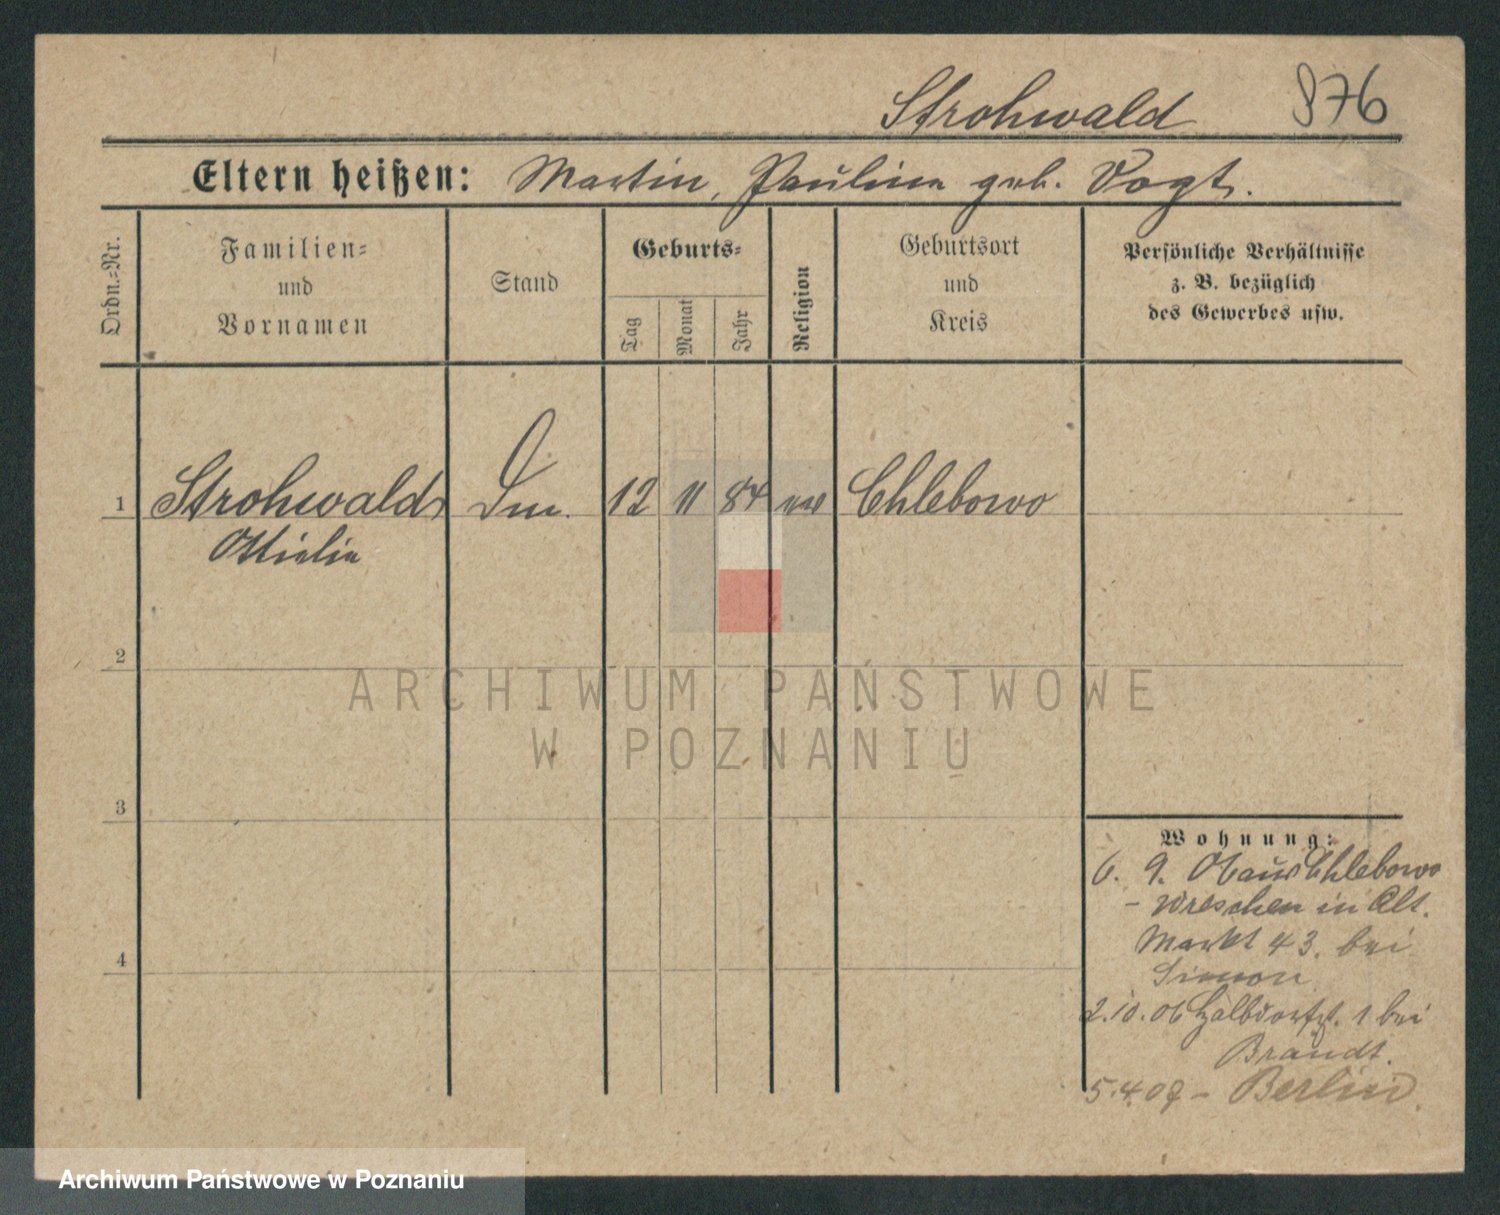 Strohwald 876
Eltern heißen: Martin, Pauline geb. Vogt.
Ordn.-Nr.
Familien-
und
Vornamen
Stand
Geburts-
Tag
Monat
Jahr
Religion
Geburtsort
und
Kreis
Persönliche Verhältnisse
z. B. bezüglich
des Gewerbes usw.
1 Strohwald 12 11 84 Chlebowo
Ottielie
2
3
4
ARCHIWUM PAŃSTWOWE
W POZNANIU
Wohnung:
6. 9. 06 aus Chlebowo
- Wreschen in Alt.
Markt 43. bei
Simon
2.10.06 Halbdorfst. 1 bei
Brandt.
- Berlin
Archiwum Państwowe w Poznaniu